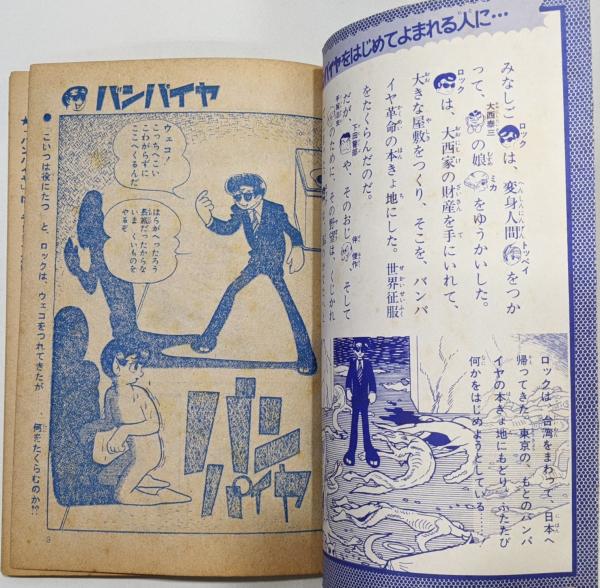 イヤをはじめてよまれる人に…
みなしごロックは、変身人間トッペイをつか
って、大西泰三の娘ミカをゆうかいした。
ロックは、大西家の財産を手にいれて、
大きな屋敷をつくり、そこを、バンパ
イヤ革命の本きょ地にした。世界征服
をたくらんだのだ。
だが、下田警部や、そのおじ、そして
いのために、その野望は、くじかれ
ロックは、台湾をまわって、日本へ
帰ってきた。東京の、もとのバンパ
イヤの本きょ地にもどり、ふたたび
何かをはじめようとしている……！
バンパイヤ
ウェコ！
こっちへこい
こわがらずに
ここへくるんだ
はらがへったろう
長旅だったからな
いま いいものを
やるぞ
バン
パイヤ
●「こいつは役にたつ」と、ロックは、ウェコをつれてきたが……何をたくらむのか!?
3